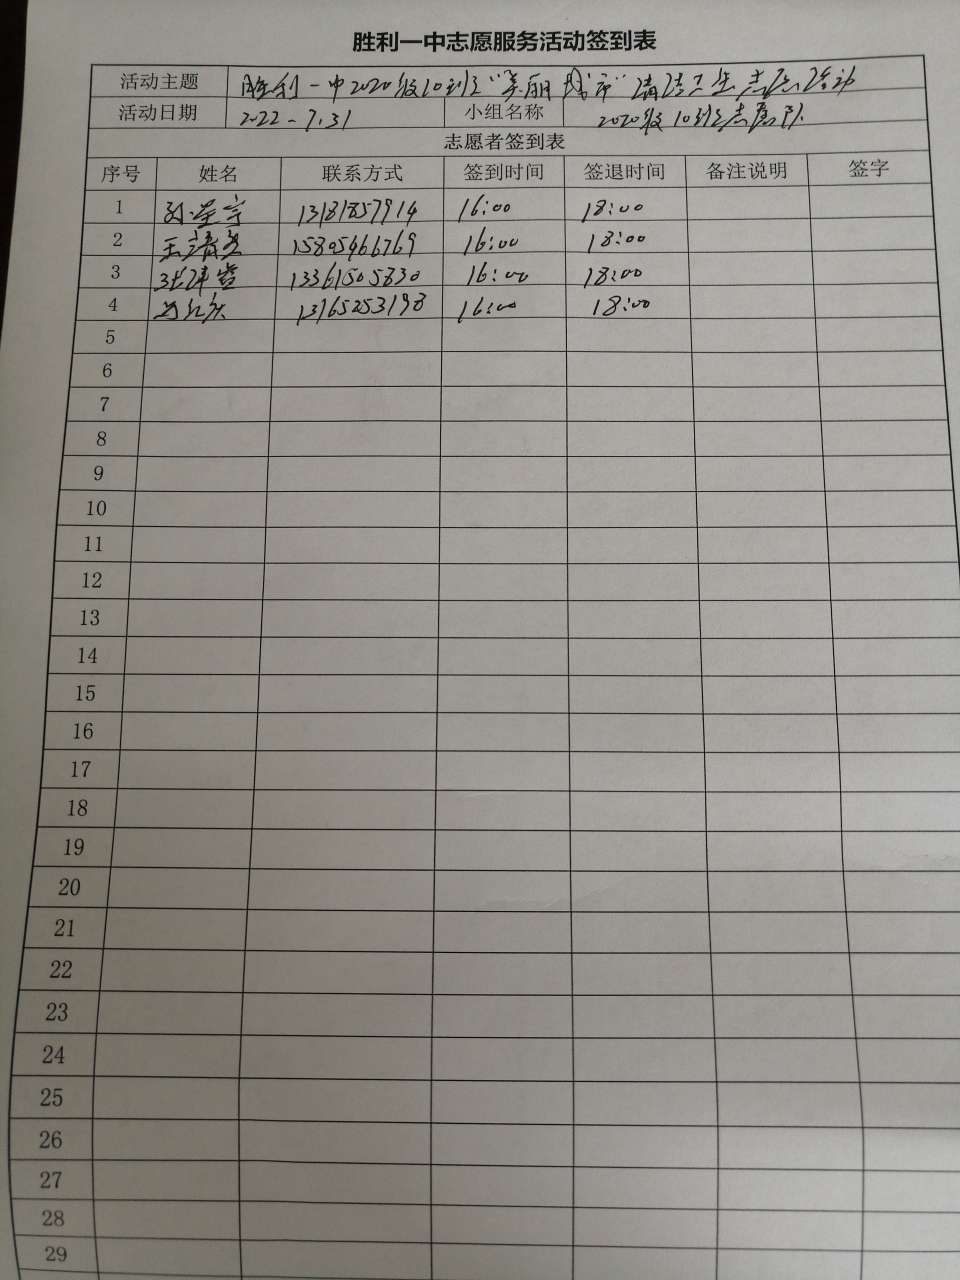 胜利一中志愿服务活动签到表
活动主题 胜利一中2020级10班"美丽城市"清洁卫生志愿活动
活动日期 2022-7.31 小组名称 2020级10班志愿队
志愿者签到表
序号 姓名 联系方式 签到时间 签退时间 备注说明 签字
1 13181857914 16:00 18:00
2 王清 15805466769 16:00 18:00
3 张 13361505830 16:00 18:00
4 13165253198 16:00 18:00
5
6
7
8
9
10
11
12
13
14
15
16
17
18
19
20
21
22
23
24
25
26
27
28
29